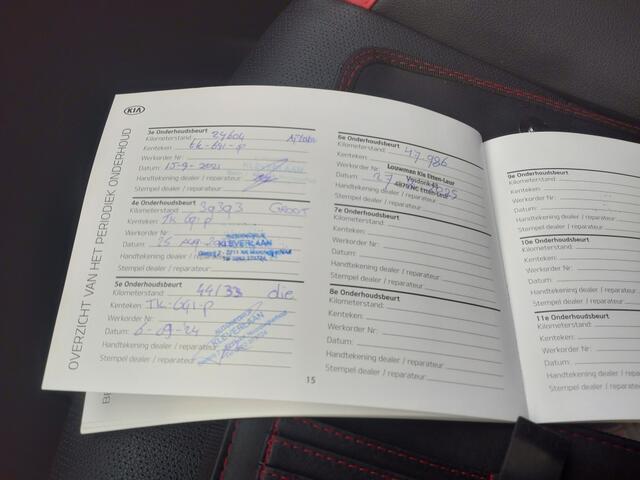 KIA
OVERZICHT VAN HET PERIODIEK ONDERHOUD
3e Onderhoudsbeurt
Kilometerstand: 29604
Kenteken: tk-691-p
Werkorder Nr.:
Datum: 15-9-2021
Handtekening dealer / reparateur:
Stempel dealer / reparateur:
KLEVERLAAN
4e Onderhoudsbeurt
Kilometerstand: 39393 GROOT
Kenteken: TK 691 P
Werkorder Nr.:
Datum: 25 aug
Handtekening dealer / reparateur:
Stempel dealer / reparateur:
KLEVERLAAN
5e Onderhoudsbeurt
Kilometerstand: 44133 die
Kenteken: TK-691-P
Werkorder Nr.:
Datum: 6-09-24
Handtekening dealer / reparateur:
Stempel dealer / reparateur:
KLEVERLAAN
15
6e Onderhoudsbeurt
Kilometerstand: 47.986
Kenteken:
Werkorder Nr.:
Datum:
Handtekening dealer / reparateur:
Stempel dealer / reparateur:
Louwman Kia Etten-Leur
Vosdonk 43
4879 NC Etten-Leur
7e Onderhoudsbeurt
Kilometerstand:
Kenteken:
Werkorder Nr.:
Datum:
Handtekening dealer / reparateur:
Stempel dealer / reparateur:
8e Onderhoudsbeurt
Kilometerstand:
Kenteken:
Werkorder Nr.:
Datum:
Handtekening dealer / reparateur:
Stempel dealer / reparateur:
9e Onderhoudsbeurt
Kilometerstand:
Kenteken:
Werkorder Nr.:
Datum:
Handtekening dealer / reparateur:
Stempel dealer / reparateur:
10e Onderhoudsbeurt
Kilometerstand:
Kenteken:
Werkorder Nr.:
Datum:
Handtekening dealer / reparateur:
Stempel dealer / reparateur:
11e Onderhoudsbeurt
Kilometerstand:
Kenteken:
Werkorder Nr.:
Datum:
Handtekening dealer / reparateur:
Stempel dealer / reparateur: